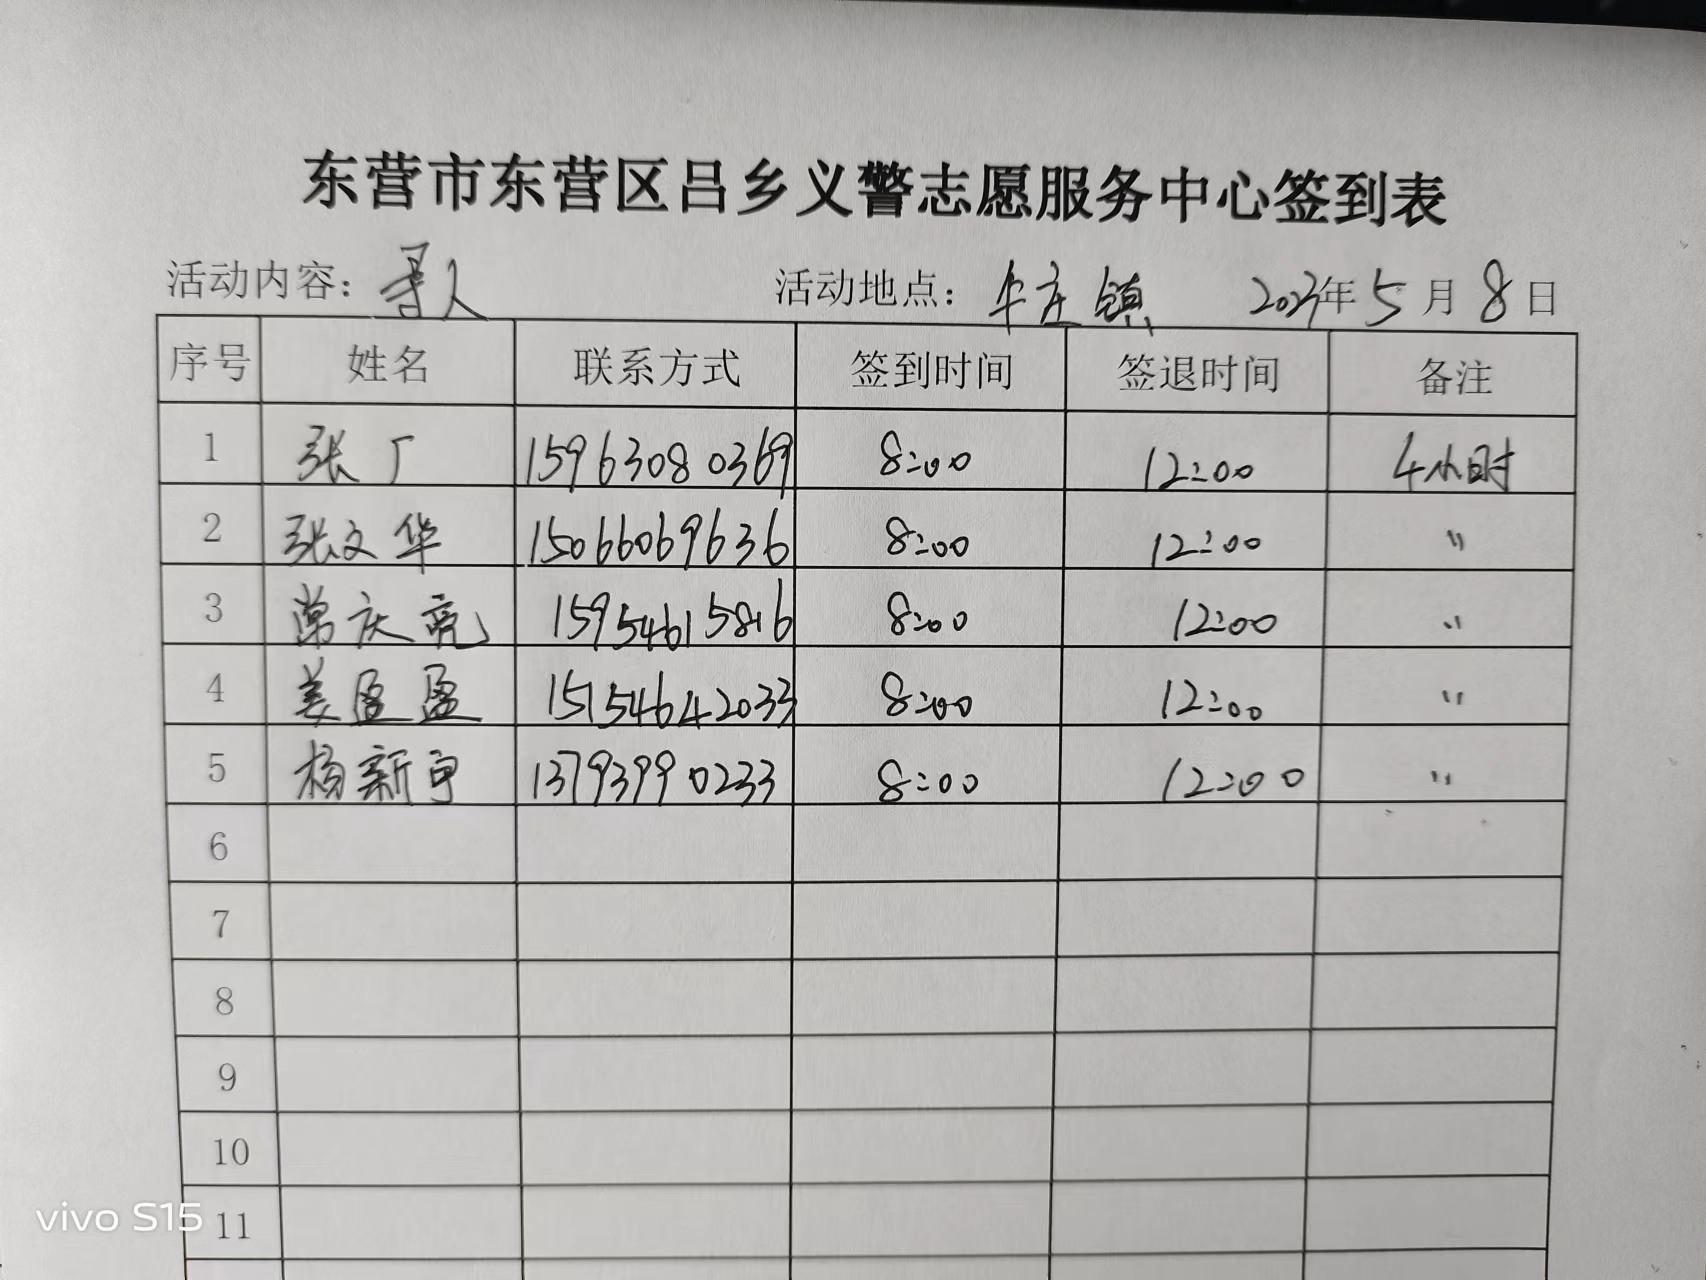 东营市东营区吕乡义警志愿服务中心签到表
活动内容：寻人 活动地点：牛庄镇 年5月8日
序号 姓名 联系方式 签到时间 签退时间 备注
1 张广 15963080369 8:00 12:00 4小时
2 张文华 15066069636 8:00 12:00 〃
3 常庆亮 15954615816 8:00 12:00 〃
4 姜盈盈 15154642033 8:00 12:00 〃
5 杨新 13793990233 8:00 12:00 〃
6
7
8
9
10
11
vivo S15